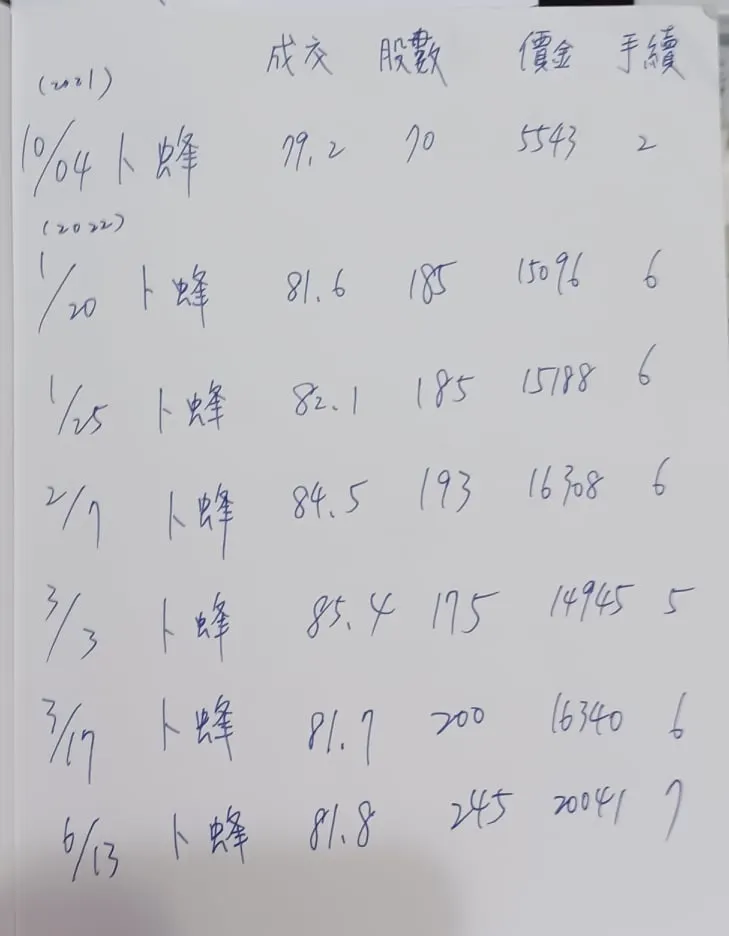 成交 股數 價金 手續
(2021)
10/04 卜蜂 79.2 70 5543 2
(2022)
1/20 卜蜂 81.6 185 15096 6
1/25 卜蜂 82.1 185 15188 6
2/7 卜蜂 84.5 193 16308 6
3/3 卜蜂 85.4 175 14945 5
3/17 卜蜂 81.7 200 16340 6
6/13 卜蜂 81.8 245 20041 7